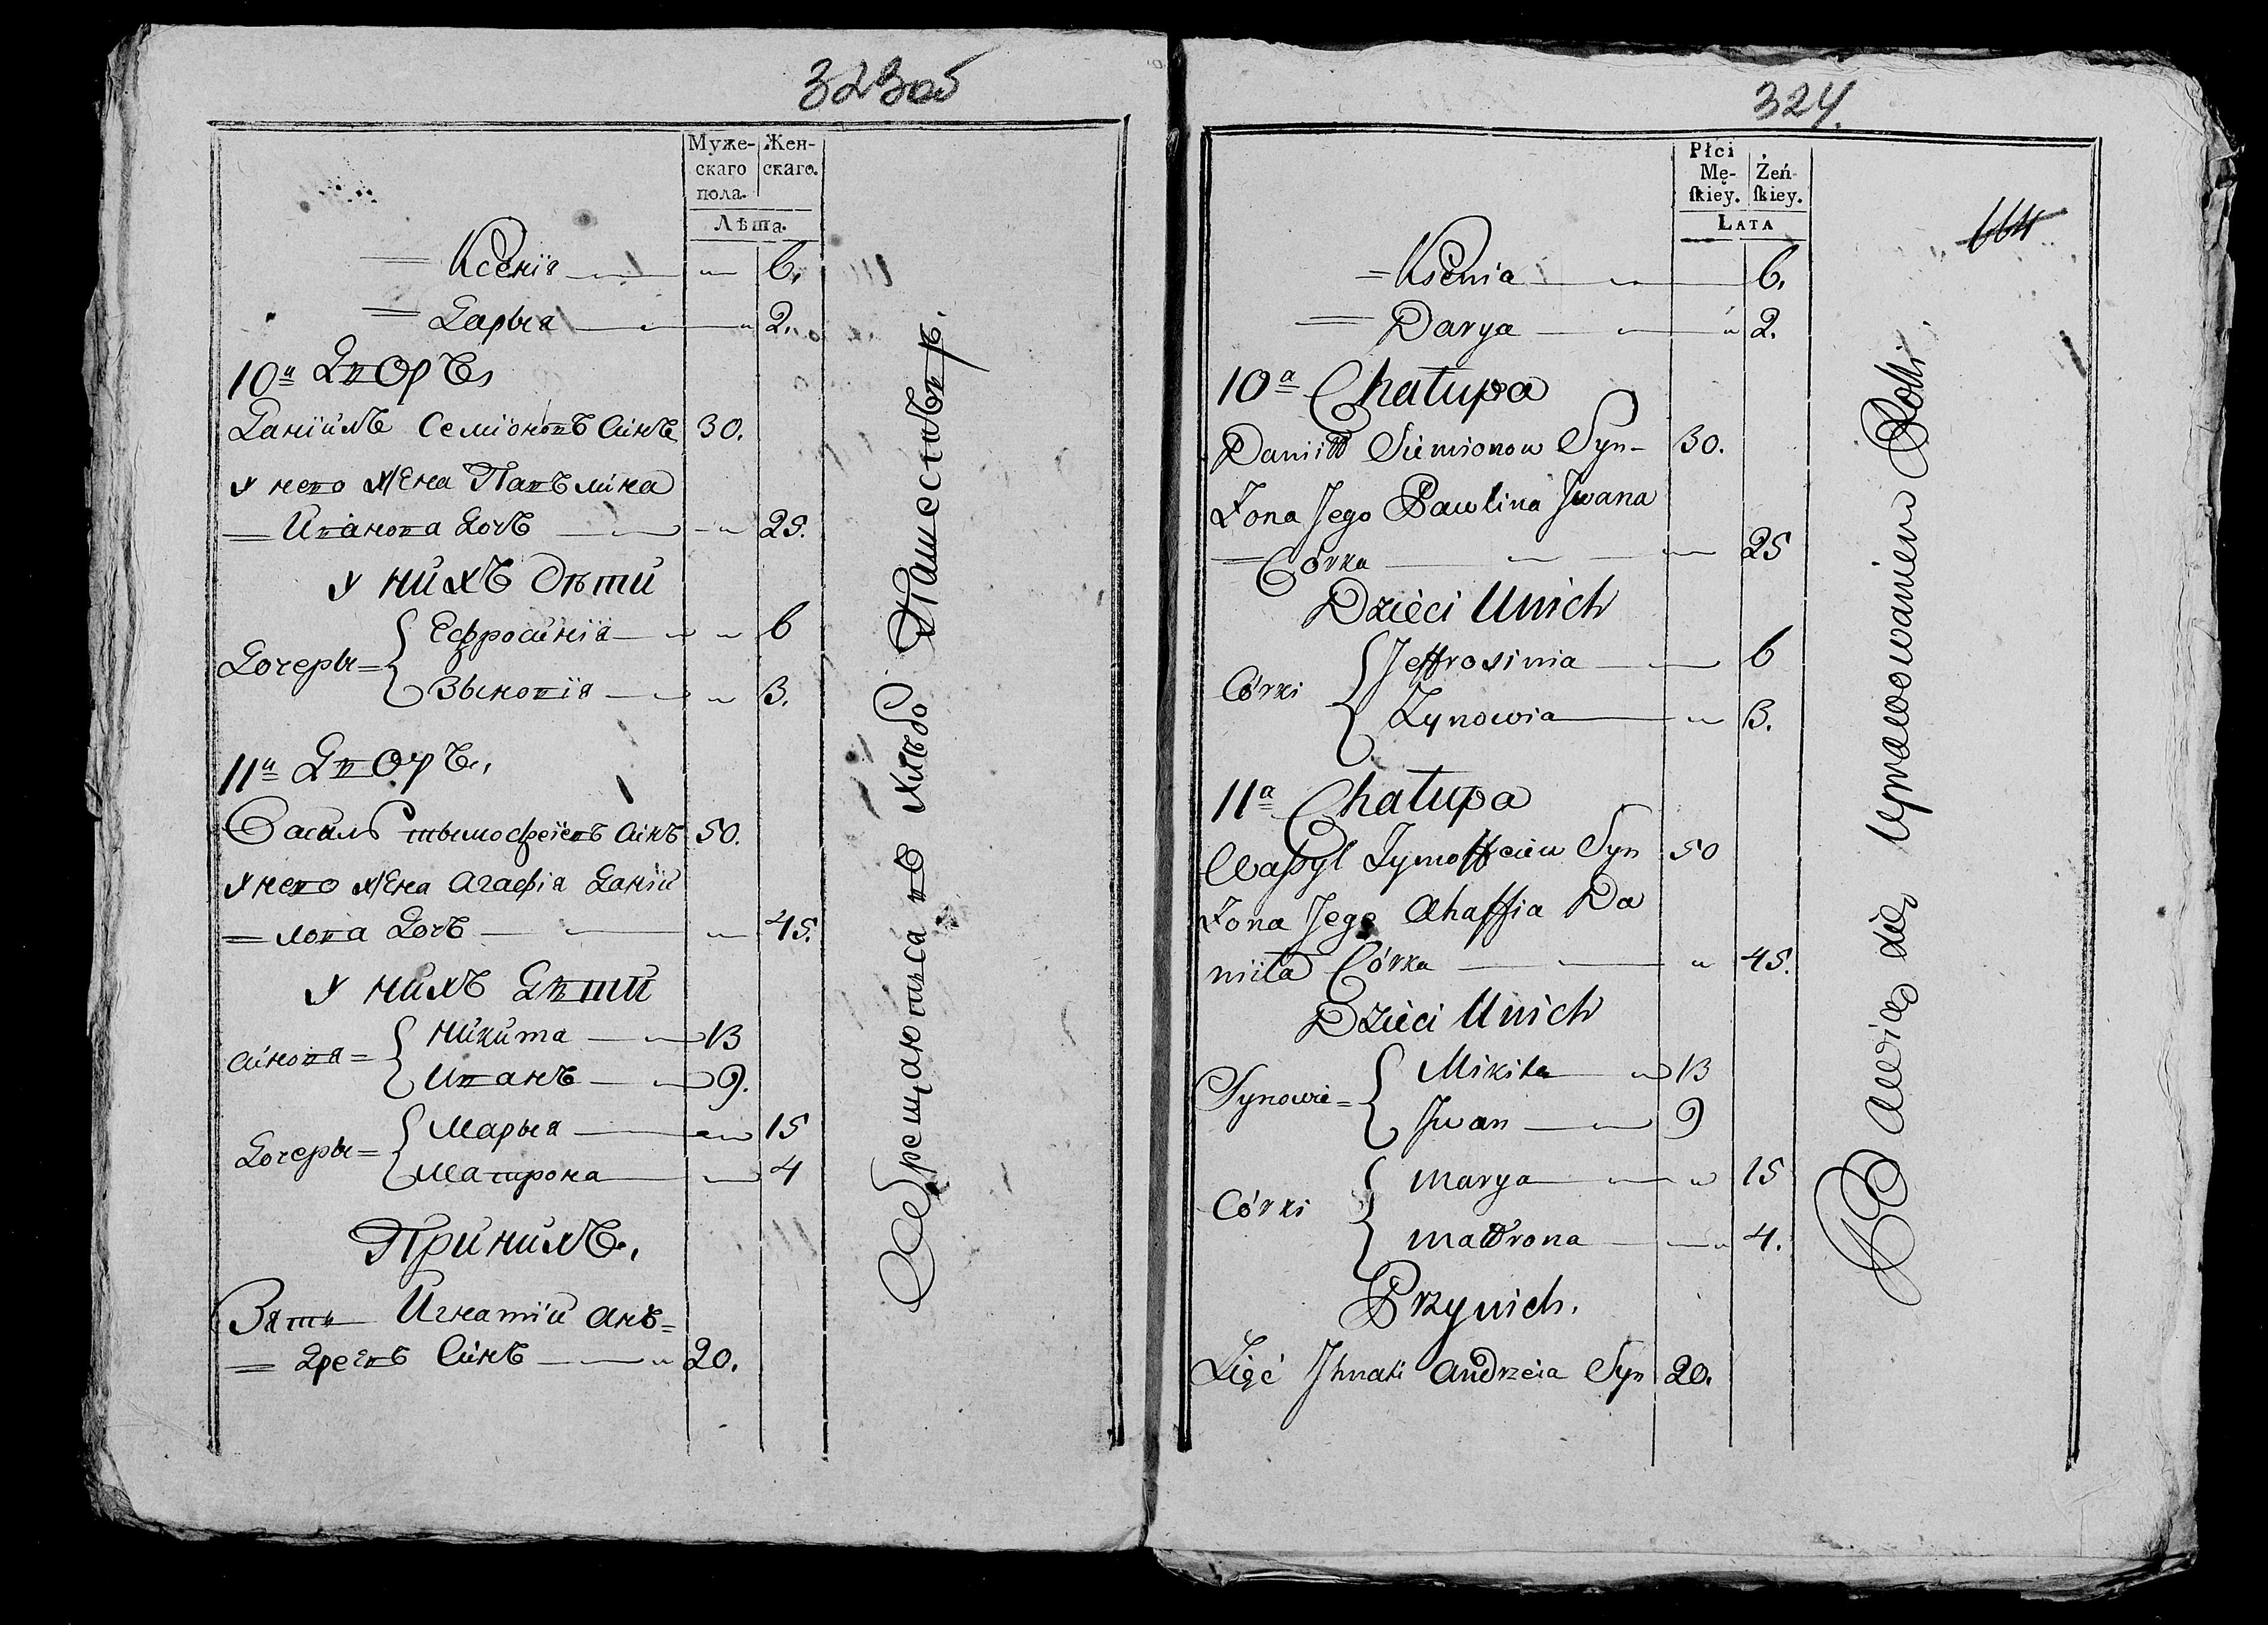 323об
Муже-
скаго
пола.
Жен-
скаго.
Лѣта.
= Ксенія — „ 6.
= Дарыя — „ 2.
10й Дворъ,
Даніилъ Семіоновъ Синъ 30.
у него жена Павълина
= Иванова Дочъ — „ 25.
у нихъ дѣти
Дочеры = { Ефросинія — „ 6
Зыновія — „ 3.
11й Дворъ,
Василь тымофеіевъ Синъ 50.
у него жена Агафія Даніи
= лова Дочъ — „ 45.
у нихъ Дѣти
Синовя = { Никита — 13
Иванъ — 9.
Дочеры = { Марыя — „ 15
Матрона — „ 4
Принихъ,
Зять Игнатіи Анъ=
= Дреевъ Синъ — „ 20.
Обрещаютьса въ хлѣбо Пашествѣ.
324.
Płci
Mę-
ſkiey.
Żeń-
ſkiey.
LATA
664
= Ksenia — 6.
= Darya — „ 2.
10a Chałupa
Daniiłł Siemionow Syn - 30.
Zona Jego Pawlina Jwana
= Córka — „ 25
Dzieci Unich
Córki { Jeffrosinia — 6
Zynowia — „ 3.
11a Chałupa
Wasyl Tymoffeiew Syn 50
Zona Jego Ahaffia Da
niiła Córka — „ 45.
Dzieci Unich
Synowie = { Mikita — 13
Jwan — 9
Córki { Marya — „ 15
Mattrona — „ 4.
Przynich.
Zięć Jhnati Andrzeia Syn 20.
Bawią się Uprawowaniem Rolli.